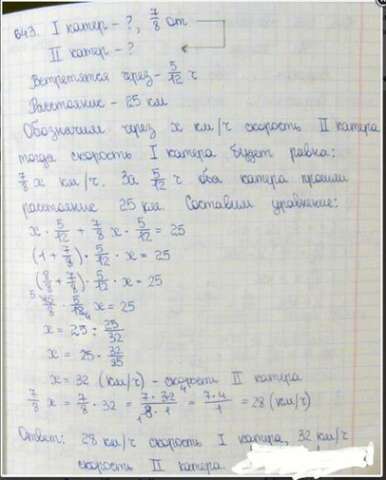 643. I катер - ?, 7/8 от
II катер - ?
Встретятся через - 5/12 ч
Расстояние - 25 км
Обозначим через x км/ч скорость II катера
тогда скорость I катера будет равна:
7/8 x км/ч. За 5/12 ч оба катера прошли
расстояние 25 км. Составим уравнение:
x · 5/12 + 7/8 x · 5/12 = 25
(1 + 7/8) · 5/12 · x = 25
(8/8 + 7/8) · 5/12 · x = 25
5 15/8 · 5/12 4 x = 25
x = 25 : 25/32
x = 25 · 32/25
x = 32 (км/ч) - скорость II катера
7/8 x = 7/8 · 32 = 7 · 32 4/1 8 · 1 = 7 · 4/1 = 28 (км/ч)
Ответ: 28 км/ч скорость I катера, 32 км/ч
скорость II катера.